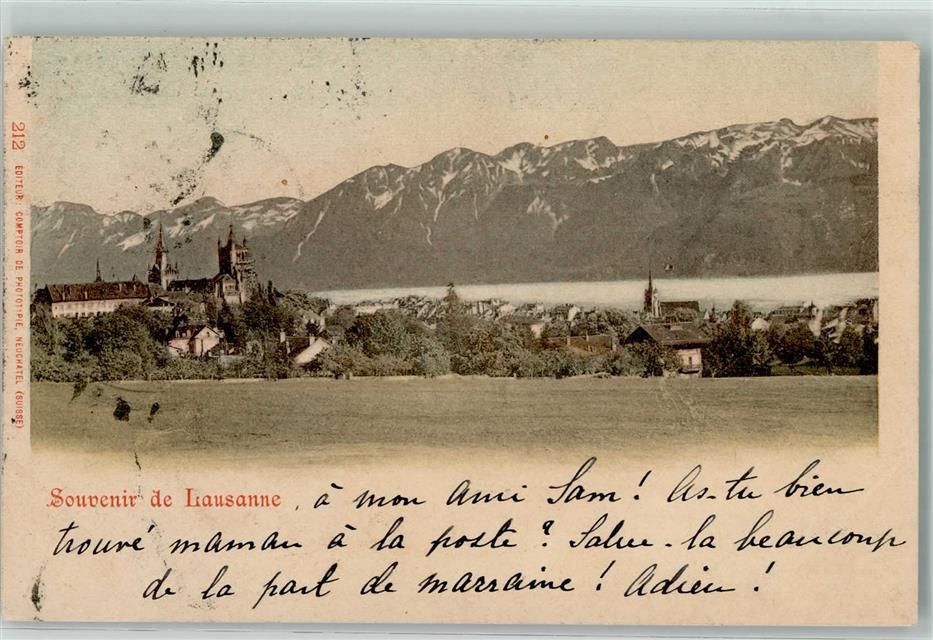 212 EDITEUR: COMPTOIR DE PHOTOTYPIE, NEUCHATEL (SUISSE)
Souvenir de Lausanne, à mon Ami Sam! As-tu bien
trouvé maman à la poste? Salue-la beaucoup
de la part de marraine! Adieu!